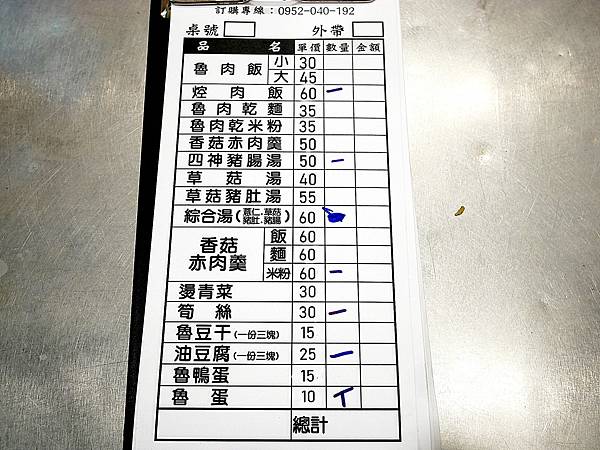 訂購專線：0952-040-192
桌號 外帶
品名 單價 數量 金額
魯肉飯 小 30
大 45
焢肉飯 60 一
魯肉乾麵 35
魯肉乾米粉 35
香菇赤肉羹 50
四神豬腸湯 50 一
草菇湯 40
草菇豬肚湯 55
綜合湯(薏仁.草菇 豬肚.豬腸) 60
香菇赤肉羹 飯 60
麵 60
米粉 60 一
燙青菜 30
筍絲 30 一
魯豆干(一份三塊) 15
油豆腐(一份三塊) 25 一
魯鴨蛋 15
魯蛋 10 丅
總計